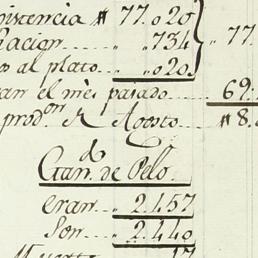 istencia # 77.020
acion.... " .734 77.
o al plato... " .020
ran el mes pasado...... 69.
prod.on de Agosto... # 8.
d
Gan. de Pelo.
eran... 2.457
Son... 2.440
17